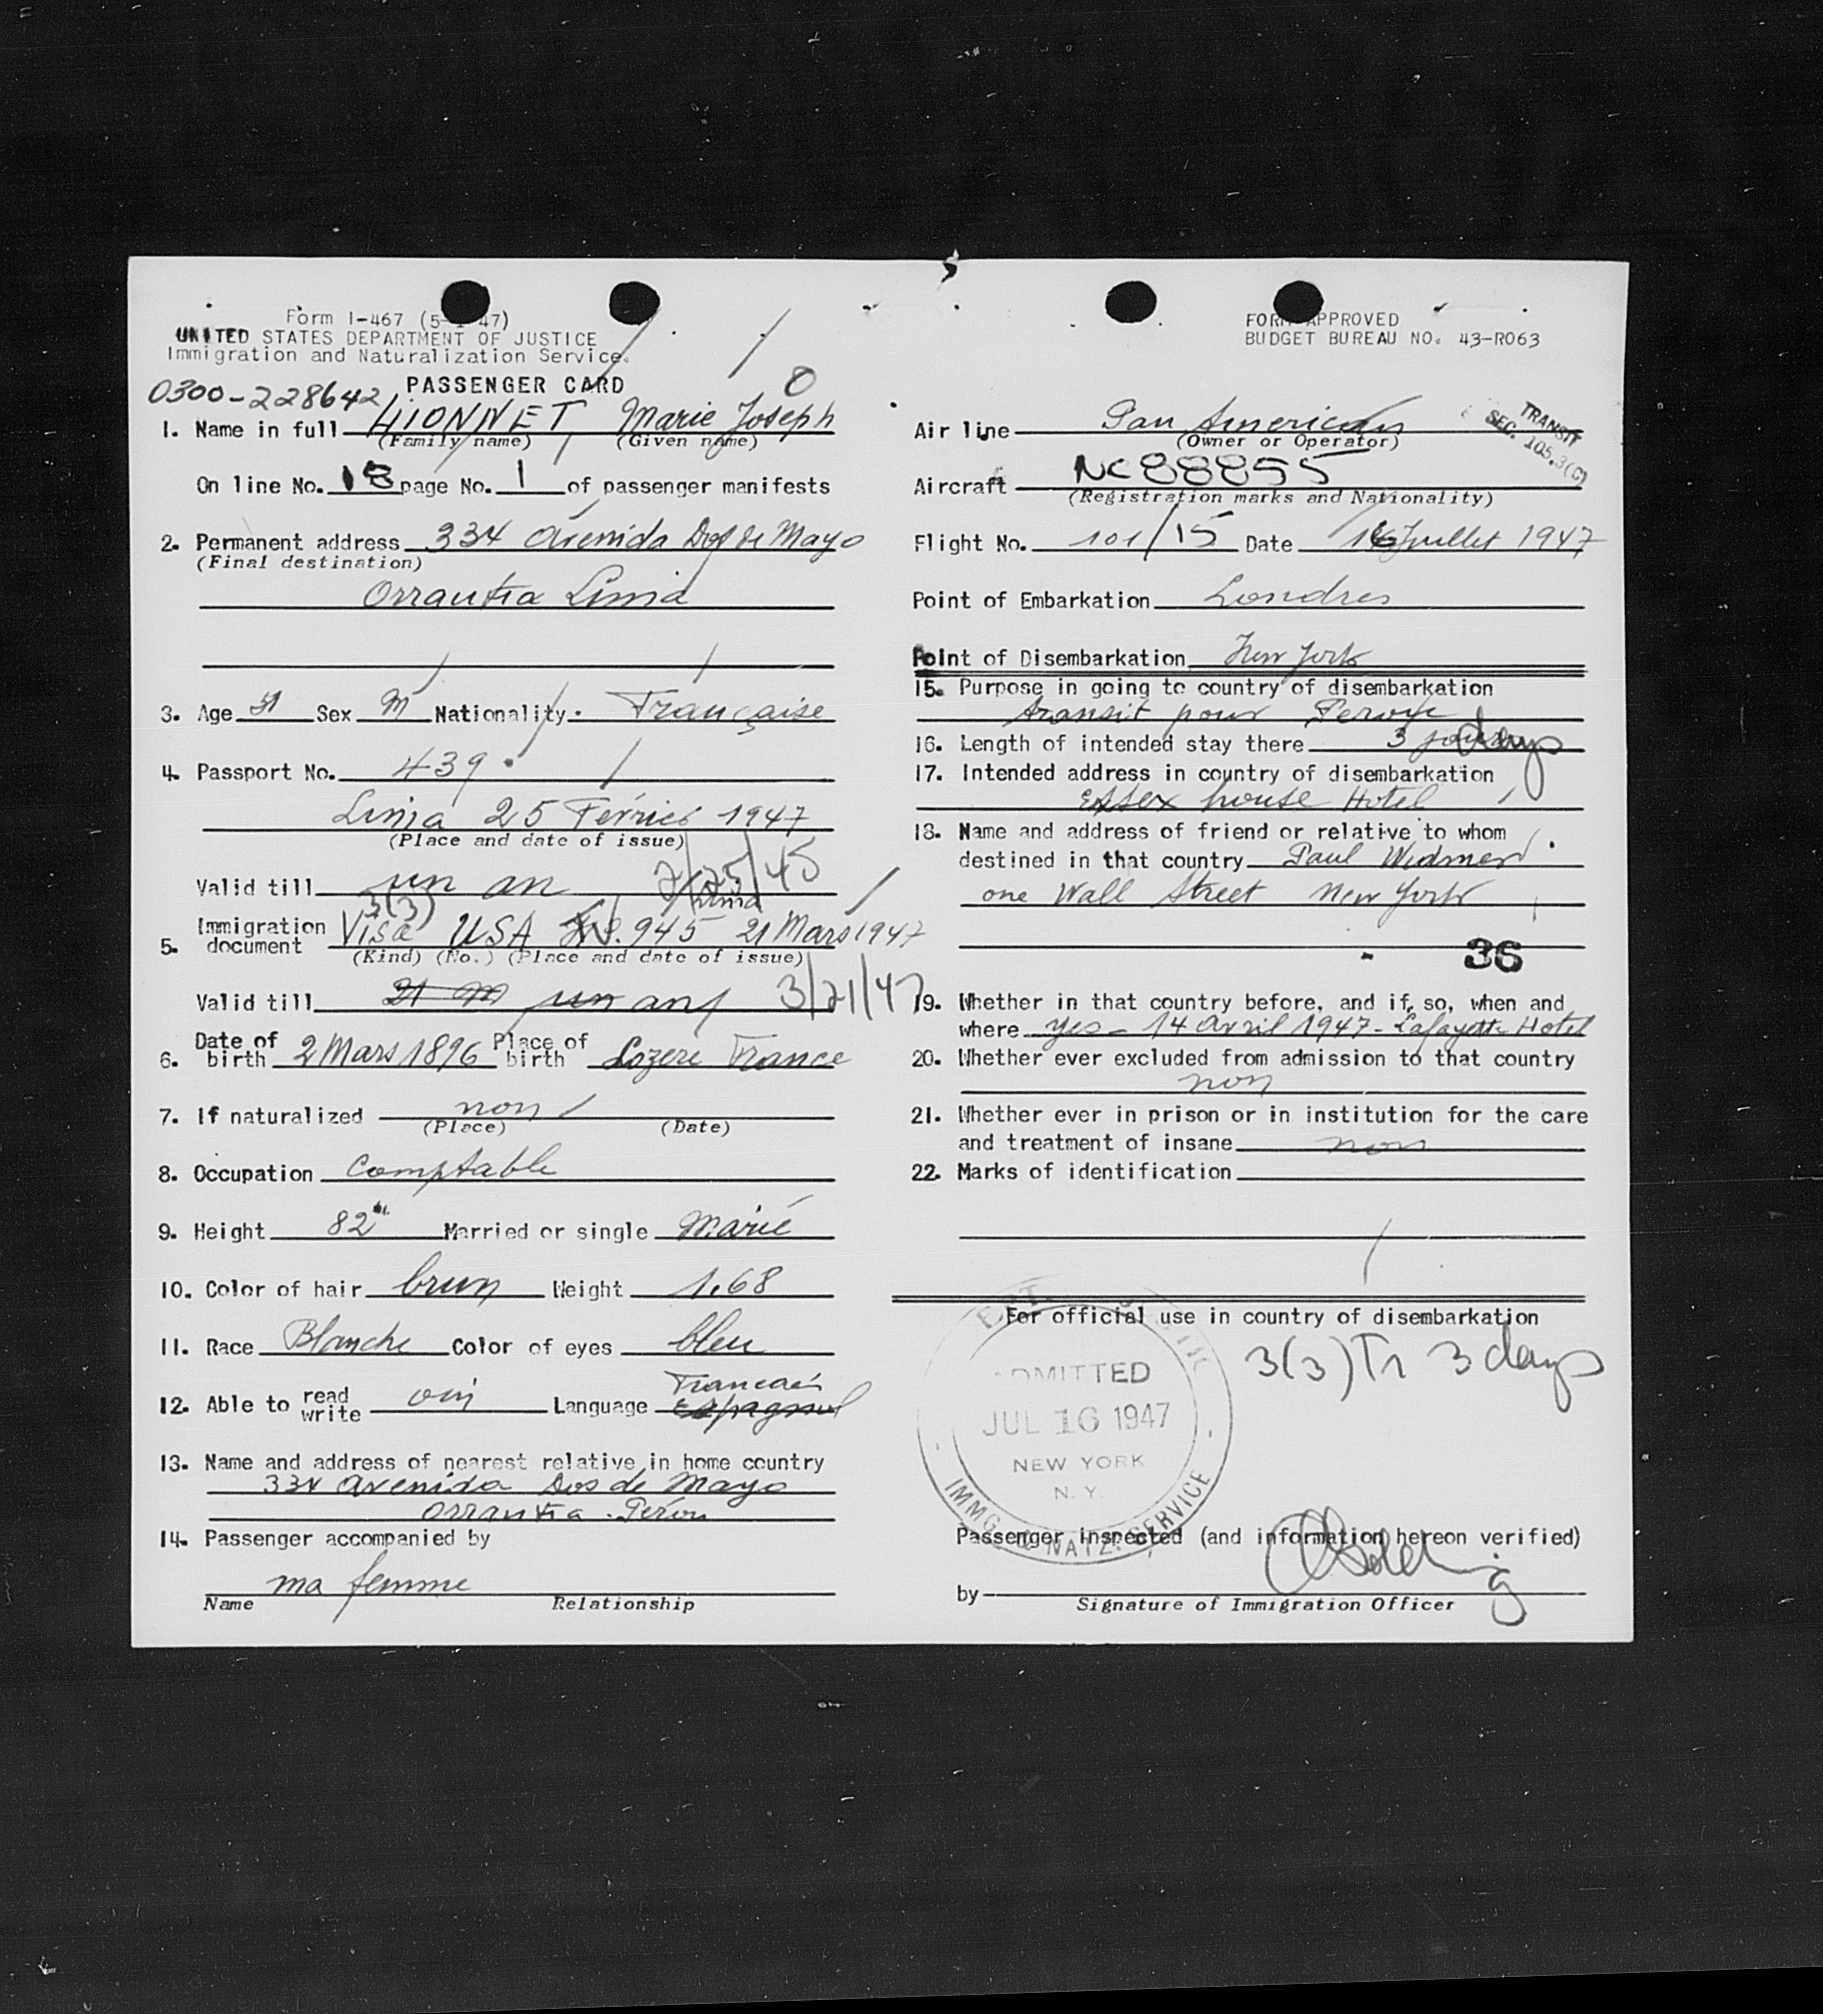 Form I-467 (5-1-47)
UNITED STATES DEPARTMENT OF JUSTICE
Immigration and Naturalization Service.
FORM APPROVED
BUDGET BUREAU NO. 43-R063
0300-228642
PASSENGER CARD
0
1. Name in full LIONNET Marie Joseph
(Family name) (Given name)
On line No. 18 page No. 1 of passenger manifests
2. Permanent address 334 Avenida Dos de Mayo
(Final destination)
Orrantia Lima
3. Age 51 Sex M Nationality. Française
4. Passport No. 439
Lima 25 Février 1947
(Place and date of issue)
Valid till un an 2/25/45
3(3) Lima
5. Immigration document Visa USA No. 945 21 Mars 1947
(Kind) (No.) (Place and date of issue)
Valid till 21 M un an 3/21/47
6. Date of birth 2 Mars 1896 Place of birth Lozere France
7. If naturalized non
(Place) (Date)
8. Occupation Comptable
9. Height 82 Married or single Marié
10. Color of hair brun Weight 1.68
11. Race Blanche Color of eyes bleu
12. Able to read write oui Language Francais Espagnol
13. Name and address of nearest relative in home country
334 Avenida Dos de Mayo
Orrantia. Pérou
14. Passenger accompanied by
ma femme
Name Relationship
Air line Pan American
(Owner or Operator)
TRANSIT
SEC. 105.3(C)
Aircraft NC 88855
(Registration marks and Nationality)
Flight No. 101/15 Date 16 Juillet 1947
Point of Embarkation Londres
Point of Disembarkation New York
15. Purpose in going to country of disembarkation
transit pour Perou
16. Length of intended stay there 3 jours days
17. Intended address in country of disembarkation
Essex house Hotel
18. Name and address of friend or relative to whom
destined in that country Paul Widmer
one Wall Street New York
36
19. Whether in that country before, and if, so, when and
where yes - 14 Avril 1947 - Lafayette Hotel
20. Whether ever excluded from admission to that country
non
21. Whether ever in prison or in institution for the care
and treatment of insane non
22. Marks of identification
For official use in country of disembarkation
3(3) Tr 3 days
ADMITTED
JUL 16 1947
NEW YORK
N. Y.
IMMG. & NATZ. SERVICE
Passenger inspected (and information hereon verified)
by
Signature of Immigration Officer